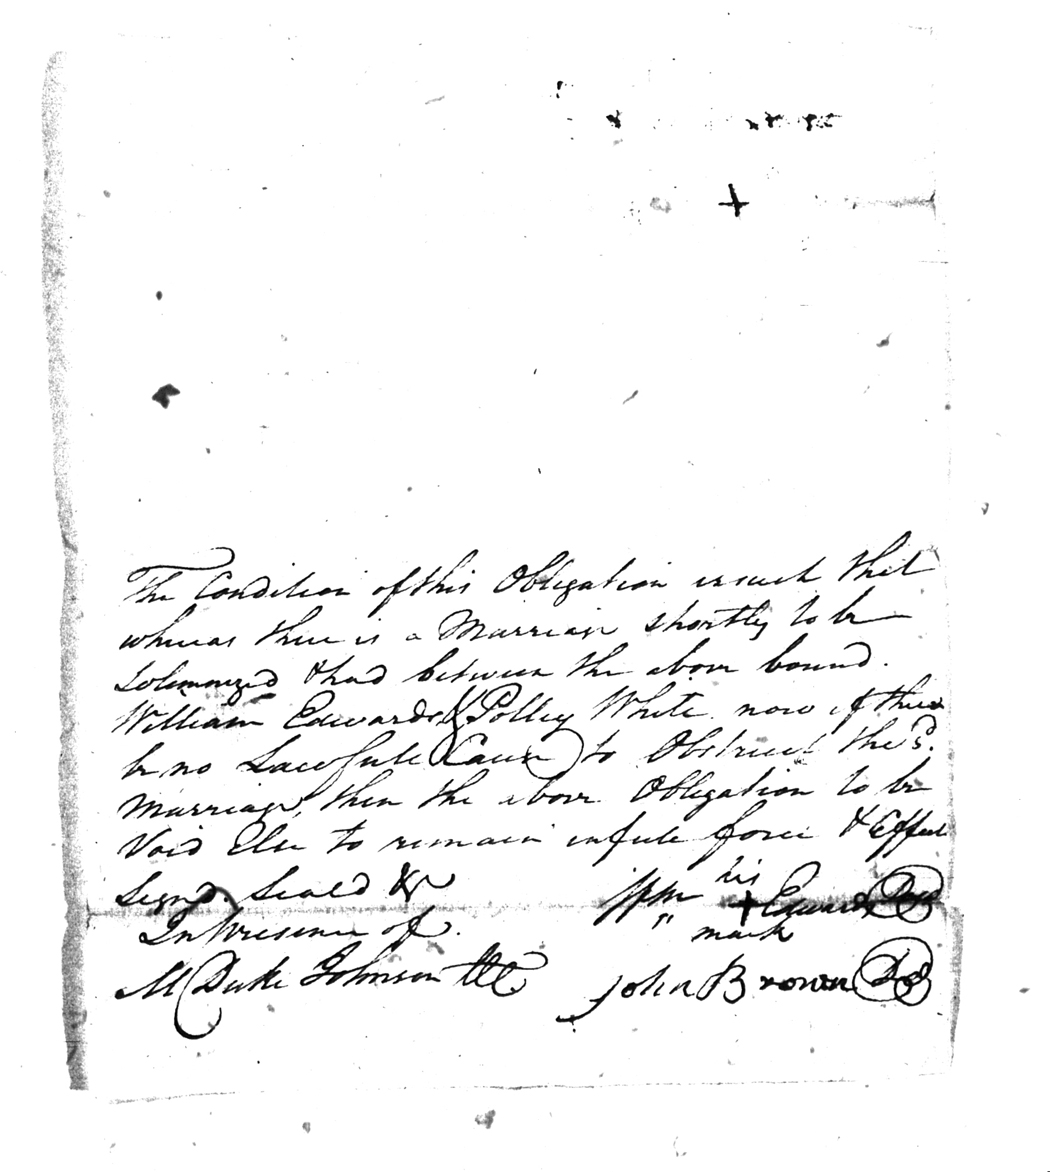 The Condition of this Obligation is such that
whereas there is a Marriage shortly to be
Solemnized & had between the above bound.
William Edwards & Polley White now if there
be no Lawfule Cause to Obstruct the sd.
Marriage, then the above Obligation to be
Void Else to remain in fule force & Effect
Signd. Seald &c
In Presence of.
M Duke Johnson
his
Wm + Edwards
mark
John Brown